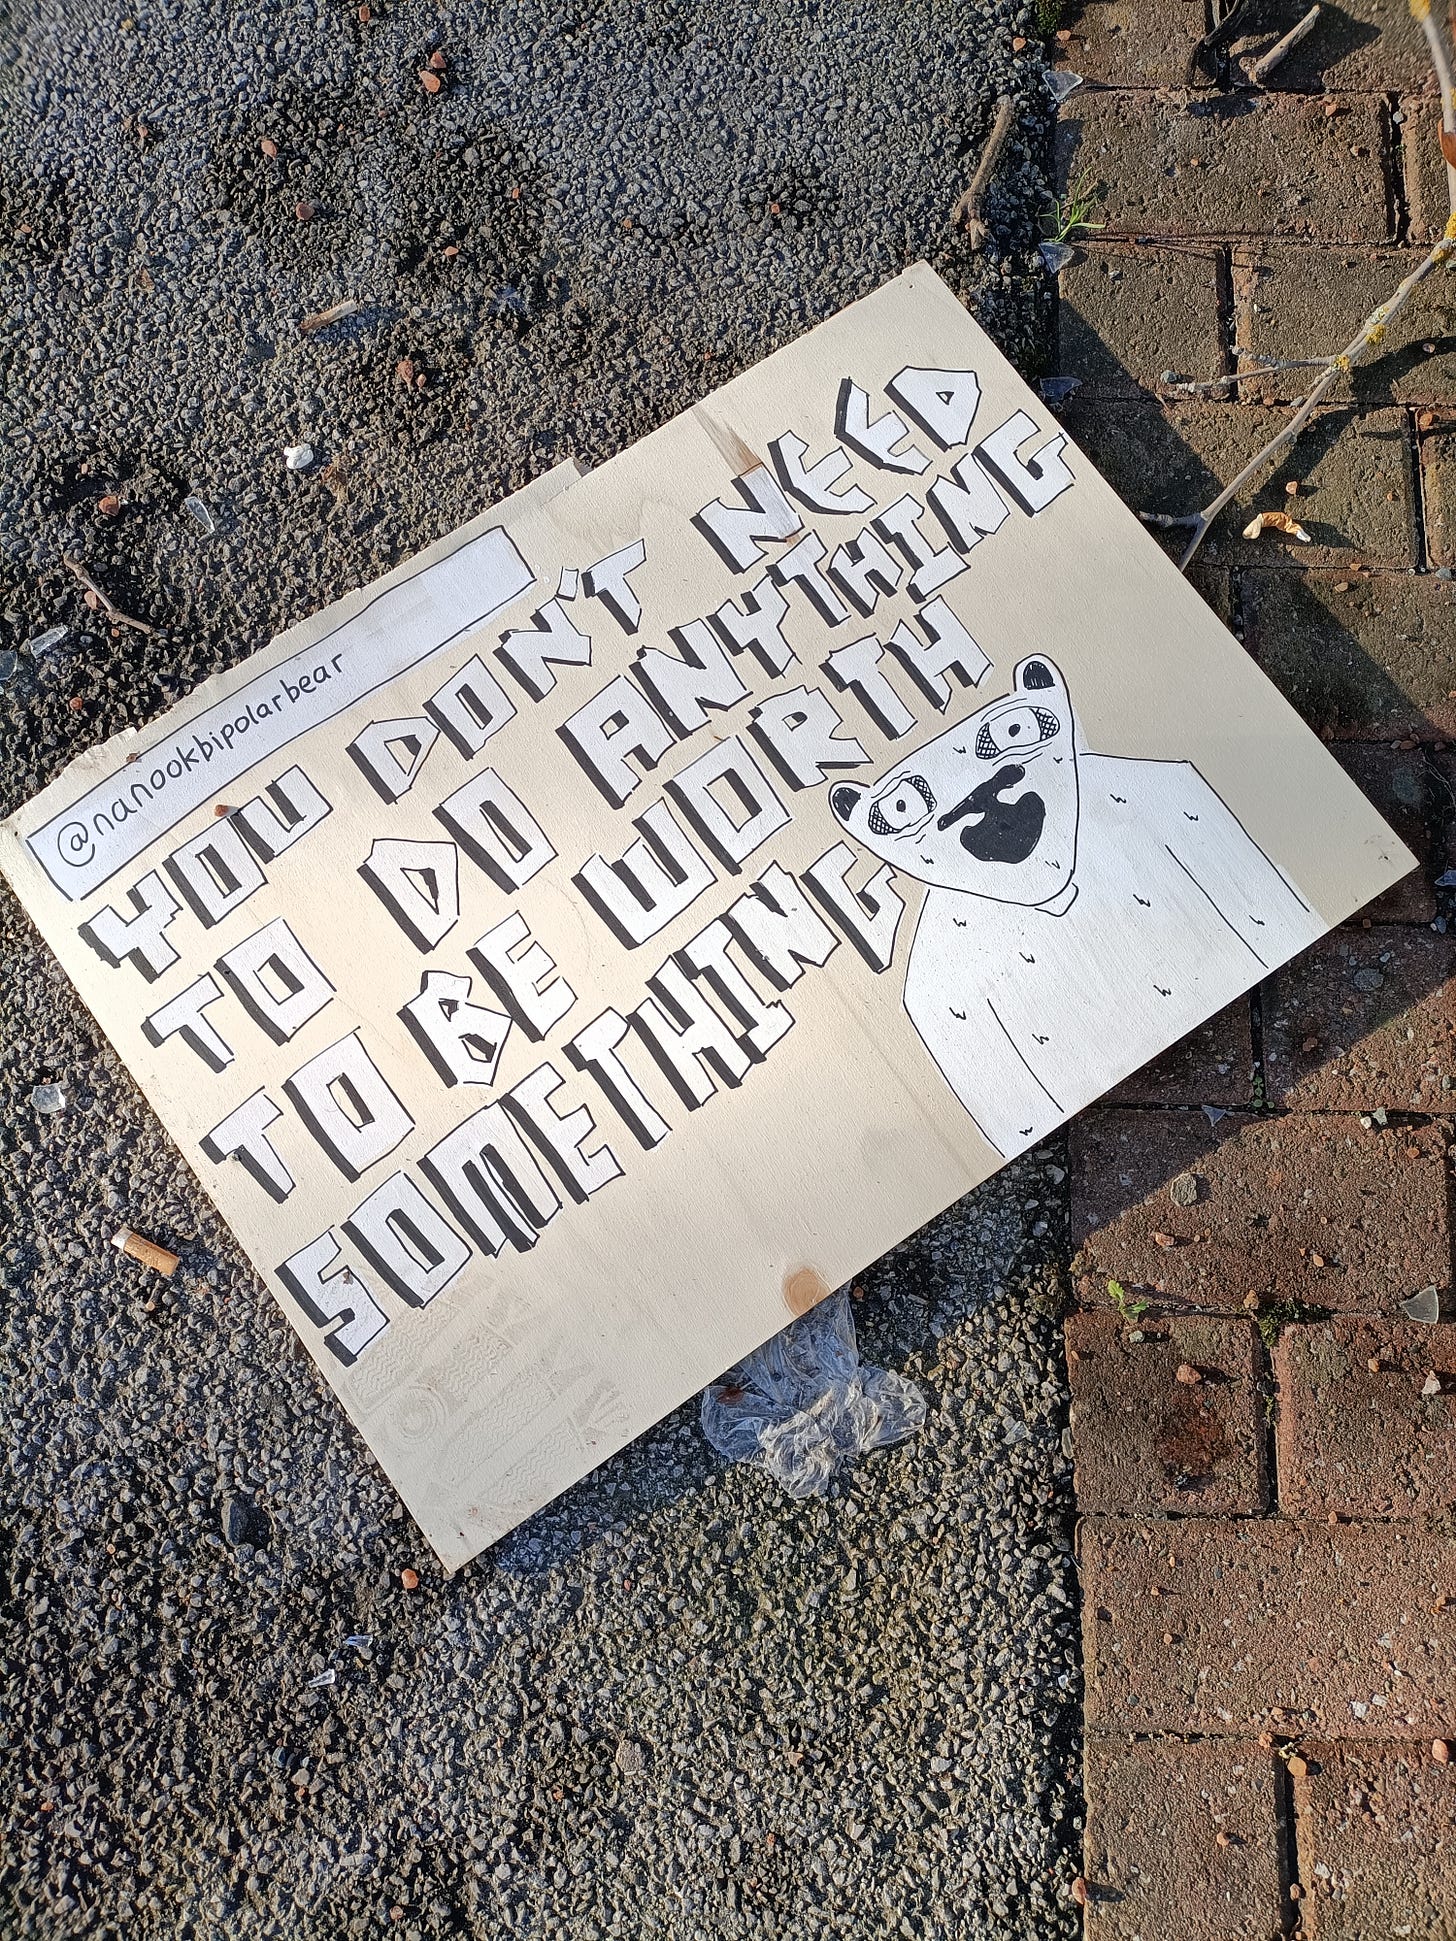 @nanookbipolarbear
YOU DON'T NEED
TO DO ANYTHING
TO BE WORTH
SOMETHING